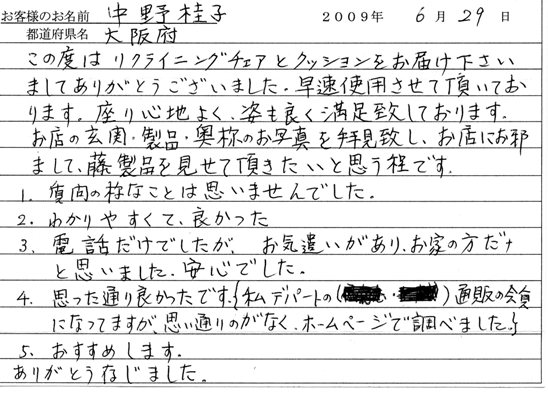 お客様のお名前 中野桂子 2009年 6月 29日
都道府県名 大阪府
この度はリクライニングチェアとクッションをお届け下さい
ましてありがとうございました。早速使用させて頂いてお
ります。座り心地よく、姿も良く満足致しております。
お店の玄関・製品・奥称のお写真を拝見致し、お店にお邪
まして、藤製品を見せて頂きたいと思う程です。
1. 質問の様なことは思いませんでした。
2. わかりやすくて、良かった
3. 電話だけでしたが、お気遣いがあり、お家の方だナ
と思いました。安心でした。
4. 思った通り良かったです。{私デパートの( ・ )通販の会員
になってますが、思い通りのがなく、ホームページで調べました。}
5. おすすめします。
ありがとうなじました。